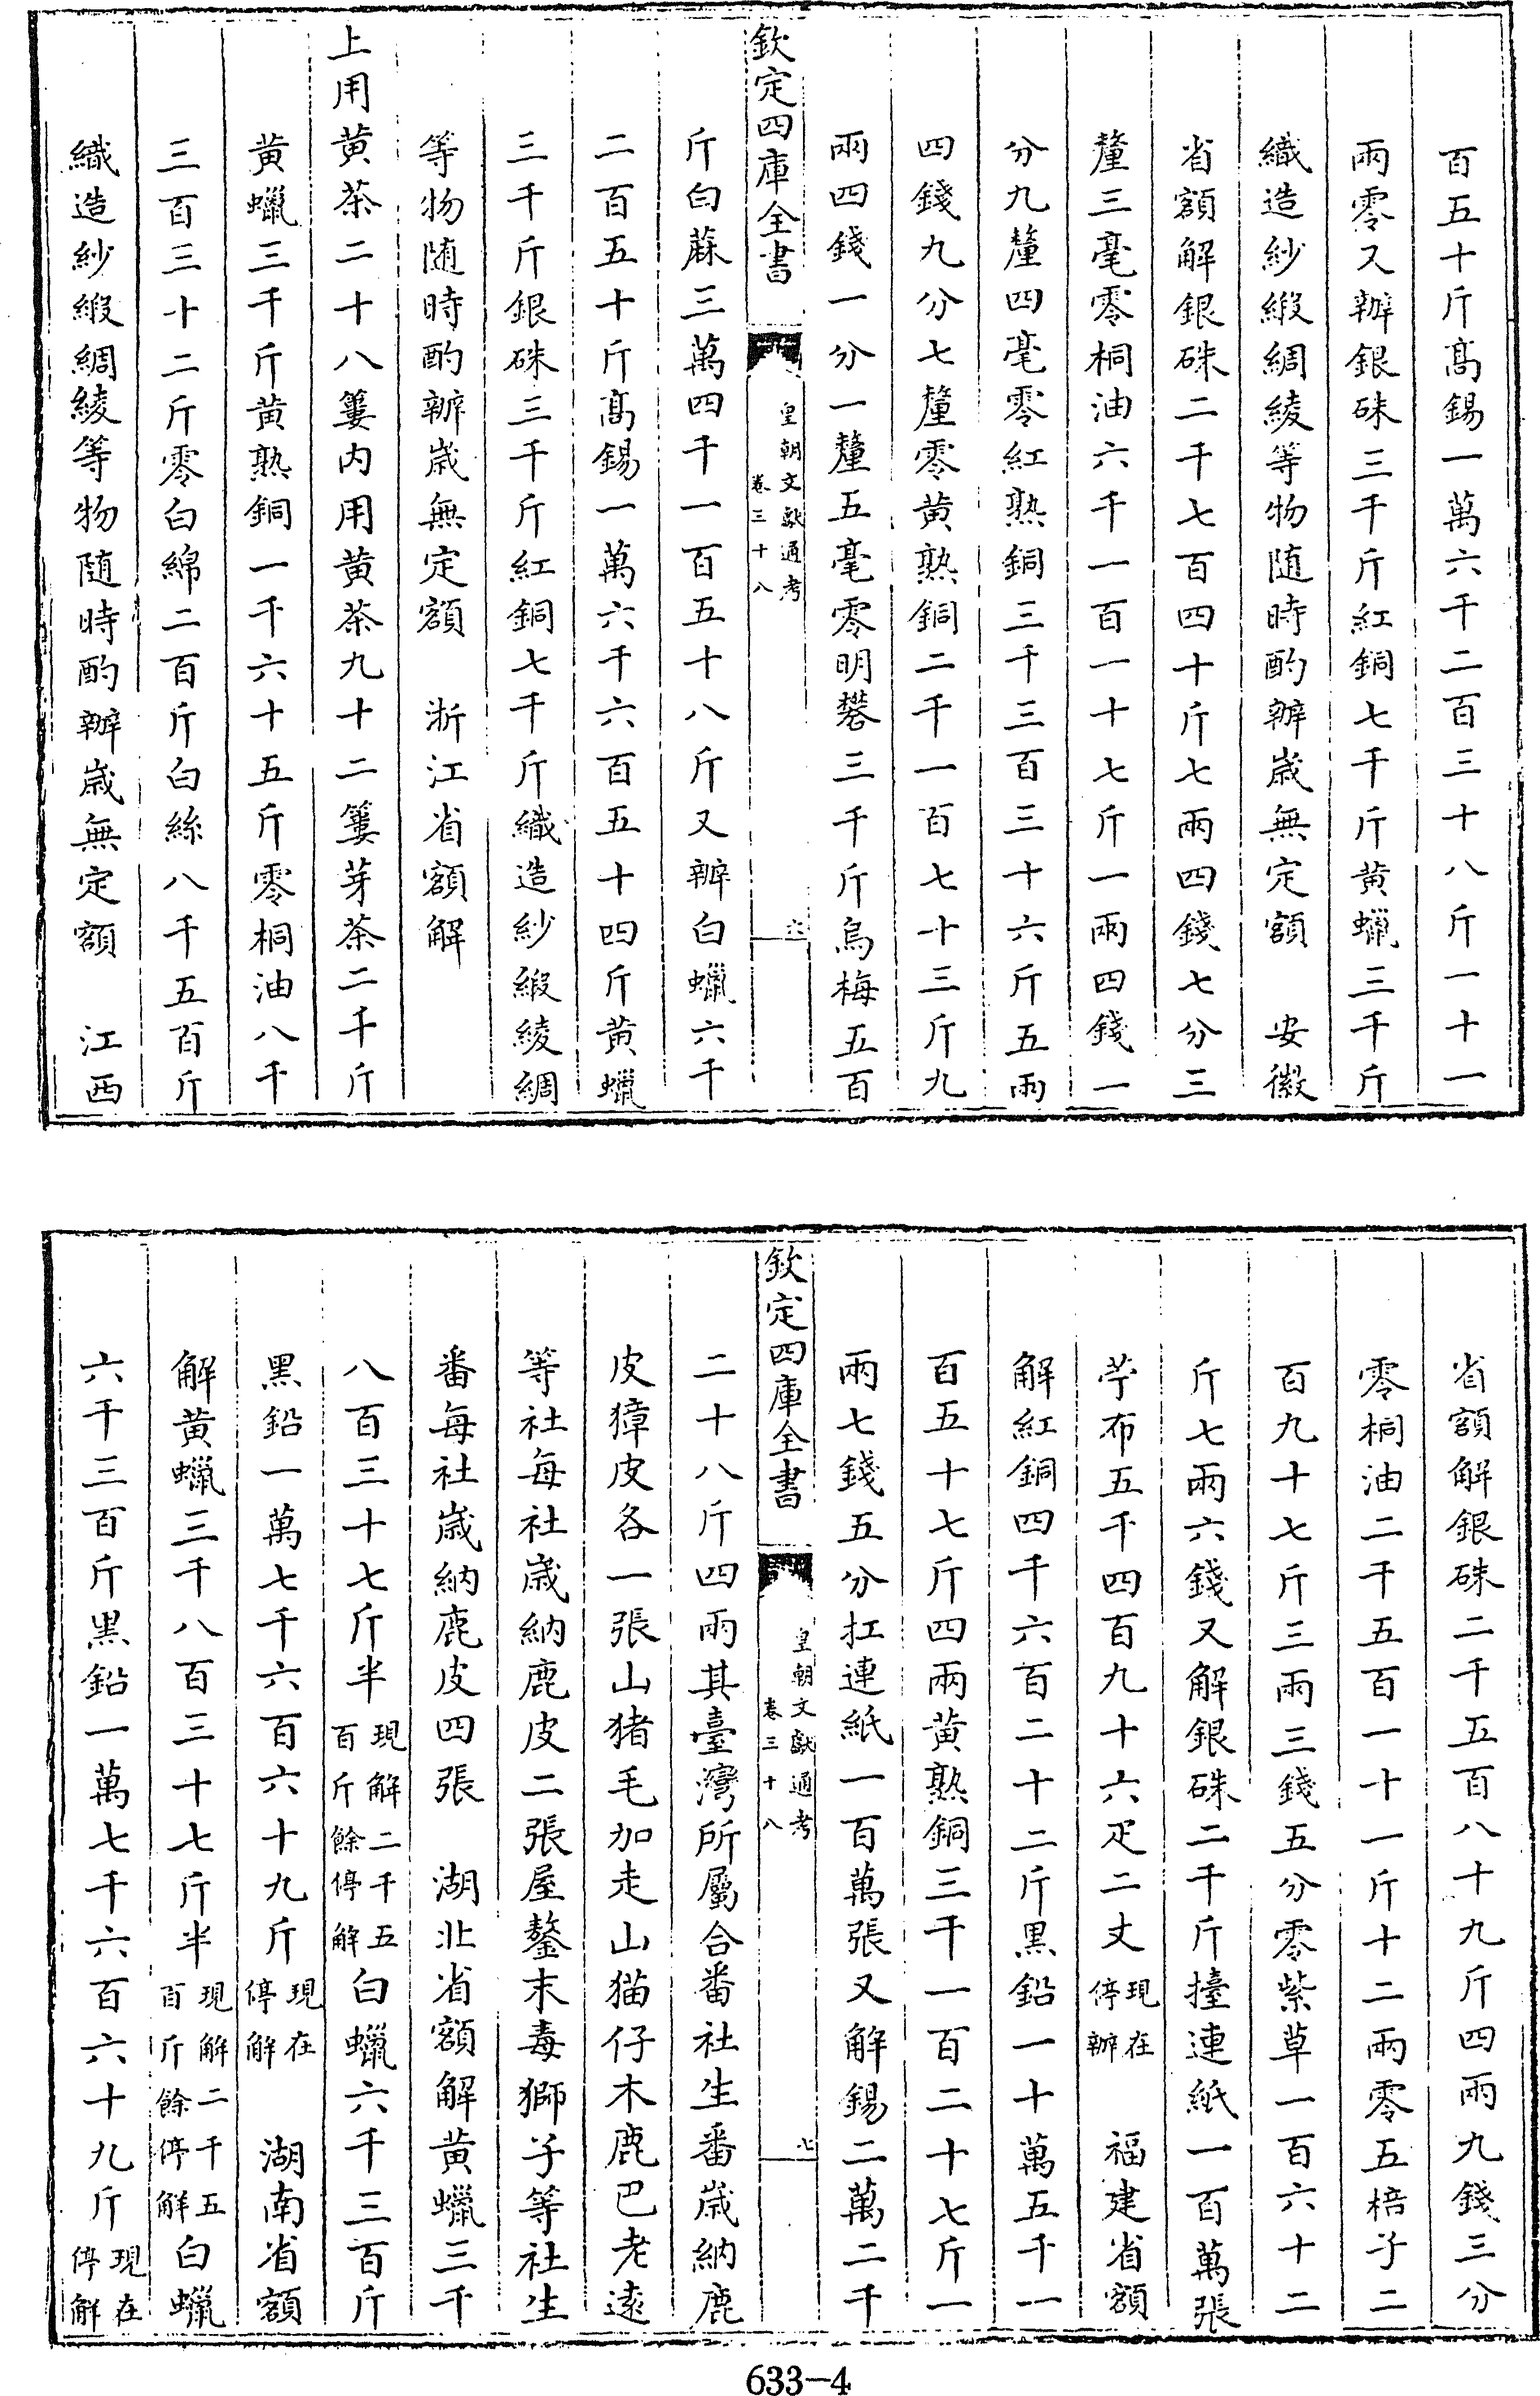 百五十斤高錫一萬六千二百三十八斤一十一
兩零又辦銀硃三千斤紅銅七千斤黄蠟三千斤
織造紗緞綢綾等物隨時酌辦歲無定額　安徽
省額解銀硃二千七百四十斤七兩四錢七分三
釐三毫零桐油六千一百一十七斤一兩四錢一
分九釐四毫零紅熟銅三千三百三十六斤五兩
四錢九分七釐零黄熟銅二千一百七十三斤九
兩四錢一分一釐五毫零明礬三千斤烏梅五百
欽定四庫全書
皇朝文獻通考
卷三十八
六
斤白蔴三萬四千一百五十八斤又辦白蠟六千
二百五十斤高錫一萬六千六百五十四斤黄蠟
三千斤銀硃三千斤紅銅七千斤織造紗緞綾綢
等物隨時酌辦歲無定額　浙江省額解
上用黄茶二十八簍内用黄茶九十二簍芽茶二千斤
黄蠟三千斤黄熟銅一千六十五斤零桐油八千
三百三十二斤零白綿二百斤白絲八千五百斤
織造紗緞綢綾等物隨時酌辦歲無定額　江西
省額解銀硃二千五百八十九斤四兩九錢三分
零桐油二千五百一十一斤十二兩零五棓子二
百九十七斤三兩三錢五分零紫草一百六十二
斤七兩六錢又解銀硃二千斤擡連紙一百萬張
苧布五千四百九十六疋二丈現在停辦　福建省額
解紅銅四千六百二十二斤黑鉛一十萬五千一
百五十七斤四兩黄熟銅三千一百二十七斤一
兩七錢五分扛連紙一百萬張又解錫二萬二千
欽定四庫全書
皇朝文獻通考
卷三十八
七
二十八斤四兩其臺灣所屬合番社生番歲納鹿
皮獐皮各一張山猪毛加走山猫仔木鹿巴老遠
等社每社歲納鹿皮二張屋鏊末毒獅子等社生
番每社歲納鹿皮四張　湖北省額解黄蠟三千
八百三十七斤半現解二千五百斤餘停解白蠟六千三百斤
黑鉛一萬七千六百六十九斤現在停解　湖南省額
解黄蠟三千八百三十七斤半現解二千五百斤餘停解白蠟
六千三百斤黑鉛一萬七千六百六十九斤現在停解
633-4